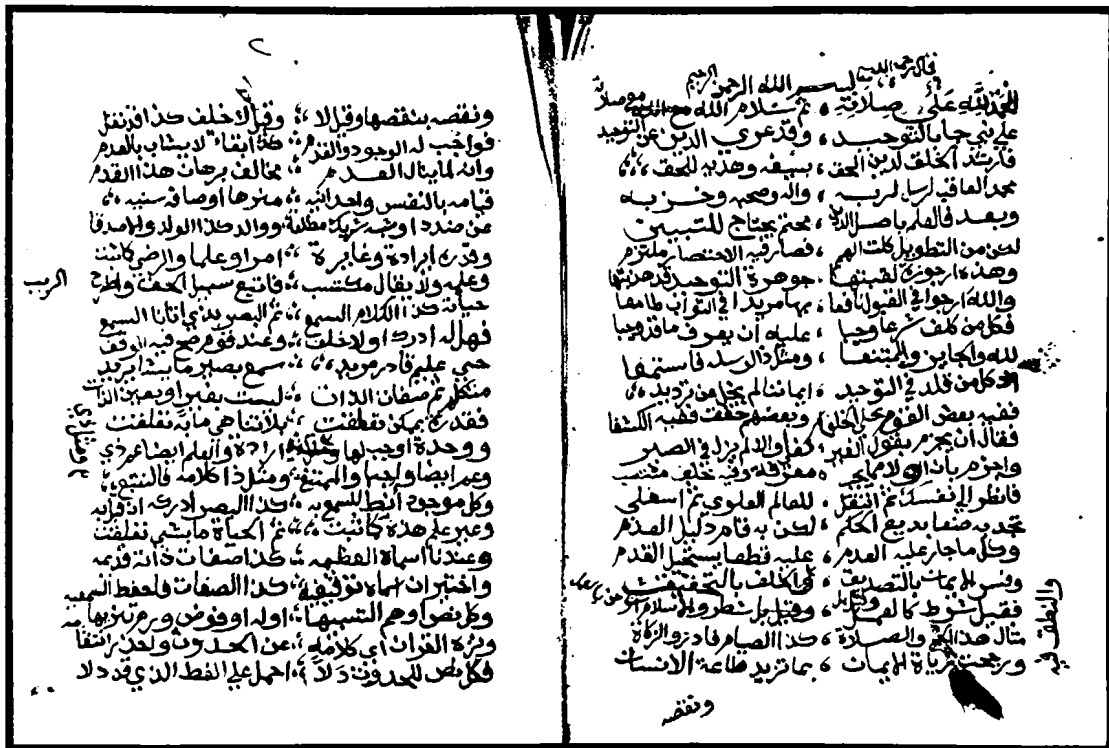 قال رحمه الله
بسم الله الرحمن الرحيم
الحمد لله على صلاته ، ثم سلام الله مع صلاته
على نبي جا بالتوحيد ، وقد عري الدين عن التوحيد
فارشد الخلق لدين الحق ، بسيفه وهديه للحق
محمد العاقب لرسل ربه ، واله وصحبه وحزبه
وبعد فالعلم باصل الدين ، محتم يحتاج للتبيين
لكن من التطويل كلت الهمم ، فصار فيه الاختصار ملتزم
وهذه ارجوزة لقبتها ، جوهرة التوحيد قد هذبتها
والله ارجو في القبول نافعا ، بها مريدا في الثواب طامعا
فكل من كلف شرعا وجبا ، عليه ان يعرف ما قد وجبا
لله والجايز والممتنعا ، ومثل ذا لرسله فاستمعا
اذ كل من قلد في التوحيد ، ايمانه لم يخل من ترديد
ففيه بعض القوم يحكي الخلفا ، وبعضهم حقق فيه الكشفا
فقال ان يجزم بقول الغير ، كفى والا لم يزل في الضير
واجزم بان اولا مما يجب ، معرفة وفيه خلف منتصب
فانظر الي نفسك ثم انتقل ، للعالم العلوي ثم السفلي
تجد به صنعا بديع الحكم ، لكن به قام دليل العدم
وكل ما جاز عليه العدم ، عليه قطعا يستحيل القدم
وفسر الايمان بالتصديق ، والنطق فيه الخلف بالتحقيق
فقيل شرط كالعمل وقيل بل ، شطر والاسلام اشرحن بالعمل
مثال هذا الحج والصلاة ، كذا الصيام فادر والزكاة
ورجحت زيادة الايمان ، بما تزيد طاعة الانسان
ونقصه
٢
ونقصه بنقصها وقيل لا ، وقيل لا خلف كذا قد نقل
فواجب له الوجود والقدم ، كذا بقاء لا يشاب بالعدم
وانه لما ينال العدم ، مخالف برهان هذا القدم
قيامه بالنفس وحدانيه ، منزها اوصافه سنيه
عن ضد او شبه شريك مطلقا ، ووالد كذا الولد والاصدقا
وقدرة ارادة وغايرة ، امرا وعلما والرضى كما ثبت
وعلمه ولا يقال مكتسب ، فاتبع سبيل الحق واطرح الريب
حياته كذا الكلام السمع ، ثم البصر بذي اتانا السمع
فهل له ادراك او لا خلف ، وعند قوم صح فيه الوقف
حي عليم قادر مريد ، سمع بصير ما يشا يريد
متكلم ثم صفات الذات ، ليست بغير او بعين الذات
فقدرة بممكن تعلقت ، بلا تناهي ما به تعلقت
ووحدة اوجب لها ومثل ذي ، ارادة والعلم ايضا عم ذي
وعم ايضا واجبا والممتنع ، ومثل ذا كلامه فالنتبع
وكل موجود انط للسمع به ، كذا البصر ادراكه ان قيل به
وغير علم هذه كما ثبت ، ثم الحياة ما بشي تعلقت
وعندنا اسماه العظيمه ، كذا صفات ذاته قديمه
واختير ان اسماه توقيفيه ، كذا الصفات فاحفظ السمعيه
وكل نص اوهم التشبيها ، اوله او فوض ورم تنزيها
ونزه القران اي كلامه ، عن الحدوث واحذر انتقامه
فكل نص للحدوث دلا ، احمل علي اللفظ الذي قد دلا